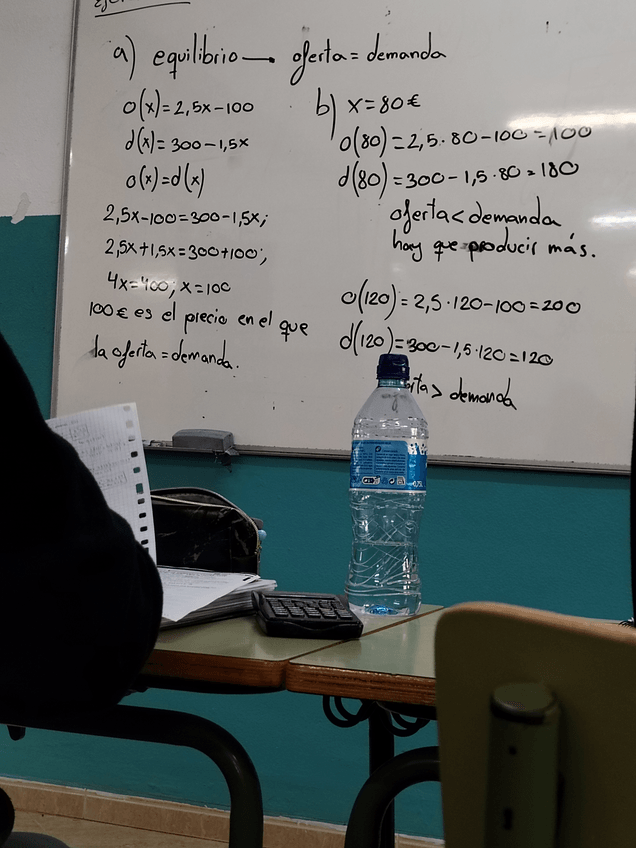 a) equilibrio — oferta = demanda
o(x) = 2,5x-100
d(x) = 300-1,5x
o(x) = d(x)
2,5x-100 = 300-1,5x;
2,5x+1,5x = 300+100;
4x = 400; x = 100
100€ es el precio en el que
la oferta = demanda.
b) x = 80€
o(80) = 2,5·80-100 = 100
d(80) = 300-1,5·80 = 180
oferta < demanda
hay que producir más.
o(120) = 2,5·120-100 = 200
d(120) = 300-1,5·120 = 120
> demanda